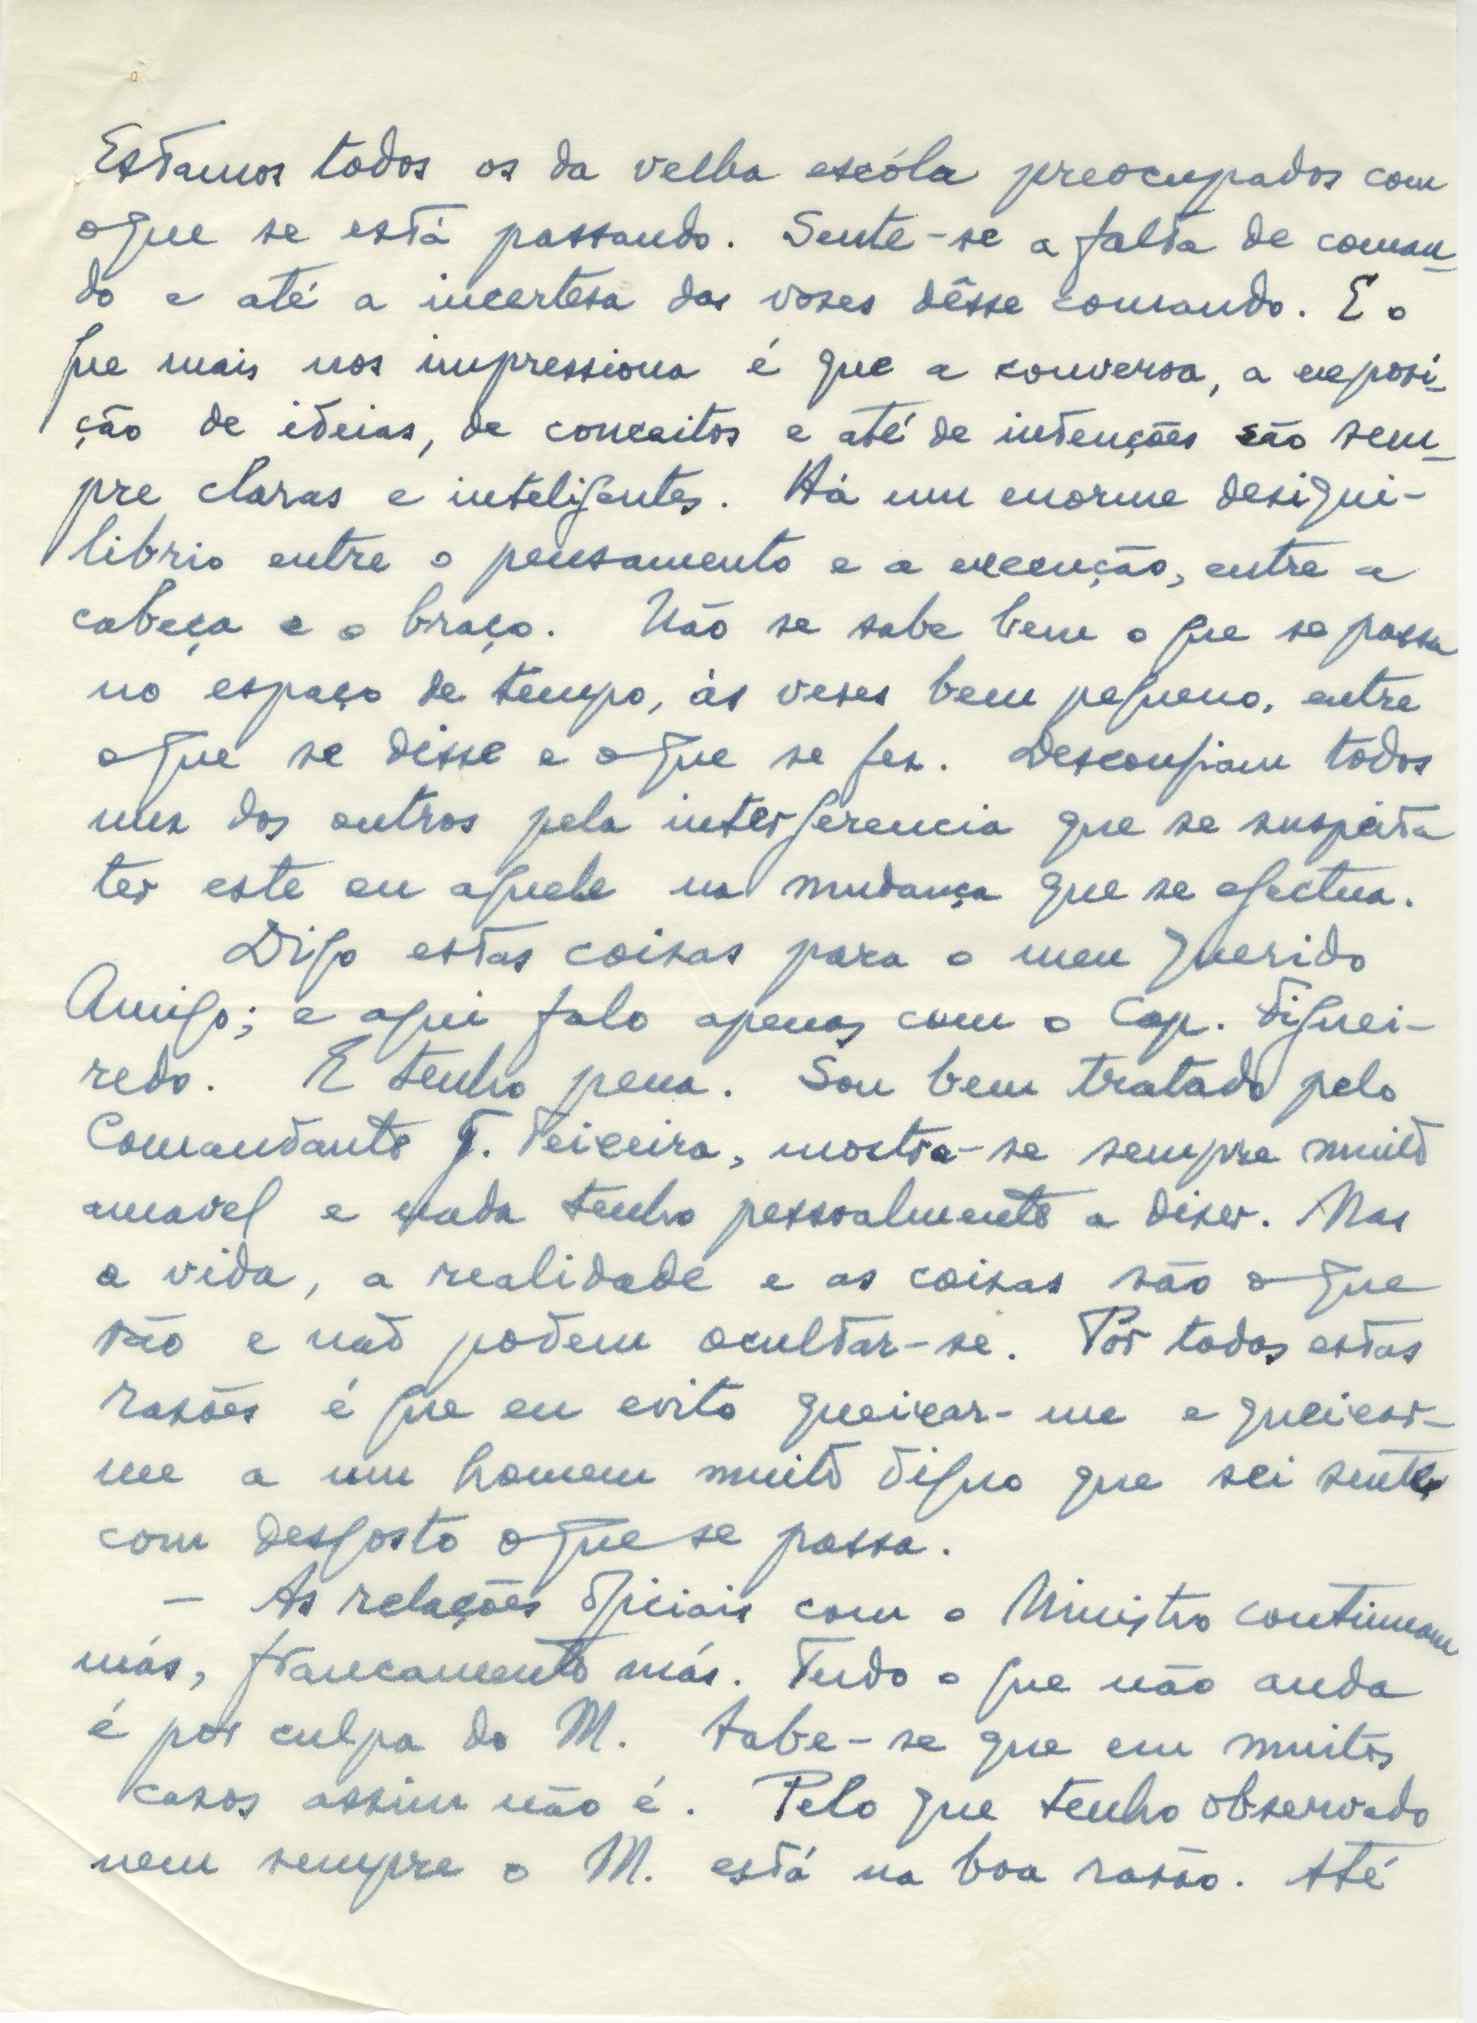 Estamos todos os da velha escóla preocupados com
o que se está passando. Sente-se a falta de coman-
do e até a incertesa das voses dêsse comando. E o
que mais nos impressiona é que a conversa, a exposi-
ção de ideias, de conceitos e até de intenções são sem-
pre claras e inteligentes. Há um enorme desiqui-
librio entre o pensamento e a execução, entre a
cabeça e o braço. Não se sabe bem o que se passa
no espaço de tempo, ás veses bem pequeno, entre
o que se disse e o que se fes. Desconfiam todos
uns dos outros pela interferencia que se suspeita
ter este ou aquele na mudança que se efectua.
Digo estas coisas para o meu querido
Amigo; e aqui falo apenas com o Cap. Figuei-
redo. E tenho pena. Sou bem tratado pelo
Comandante G. Teixeira, mostra-se sempre muito
amavel e nada tenho pessoalmente a diser. Mas
a vida, a realidade e as coisas são o que
são e não podem ocultar-se. Por todas estas
rasões é que eu evito queixar-me e queixar-
me a um homem muito digno que sei sente
com desgosto o que se passa.
- As relações oficiais com o Ministro continuam
más, francamente más. Tudo o que não anda
é por culpa do M. Sabe-se que em muitos
casos assim não é. Pelo que tenho observado
nem sempre o M. está na boa rasão. Até